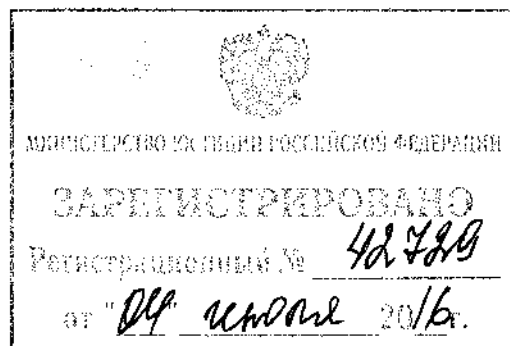 МИНИСТЕРСТВО ЮСТИЦИИ РОССИЙСКОЙ ФЕДЕРАЦИИ
ЗАРЕГИСТРИРОВАНО
Регистрационный № 42729
от "04" июля 2016г.